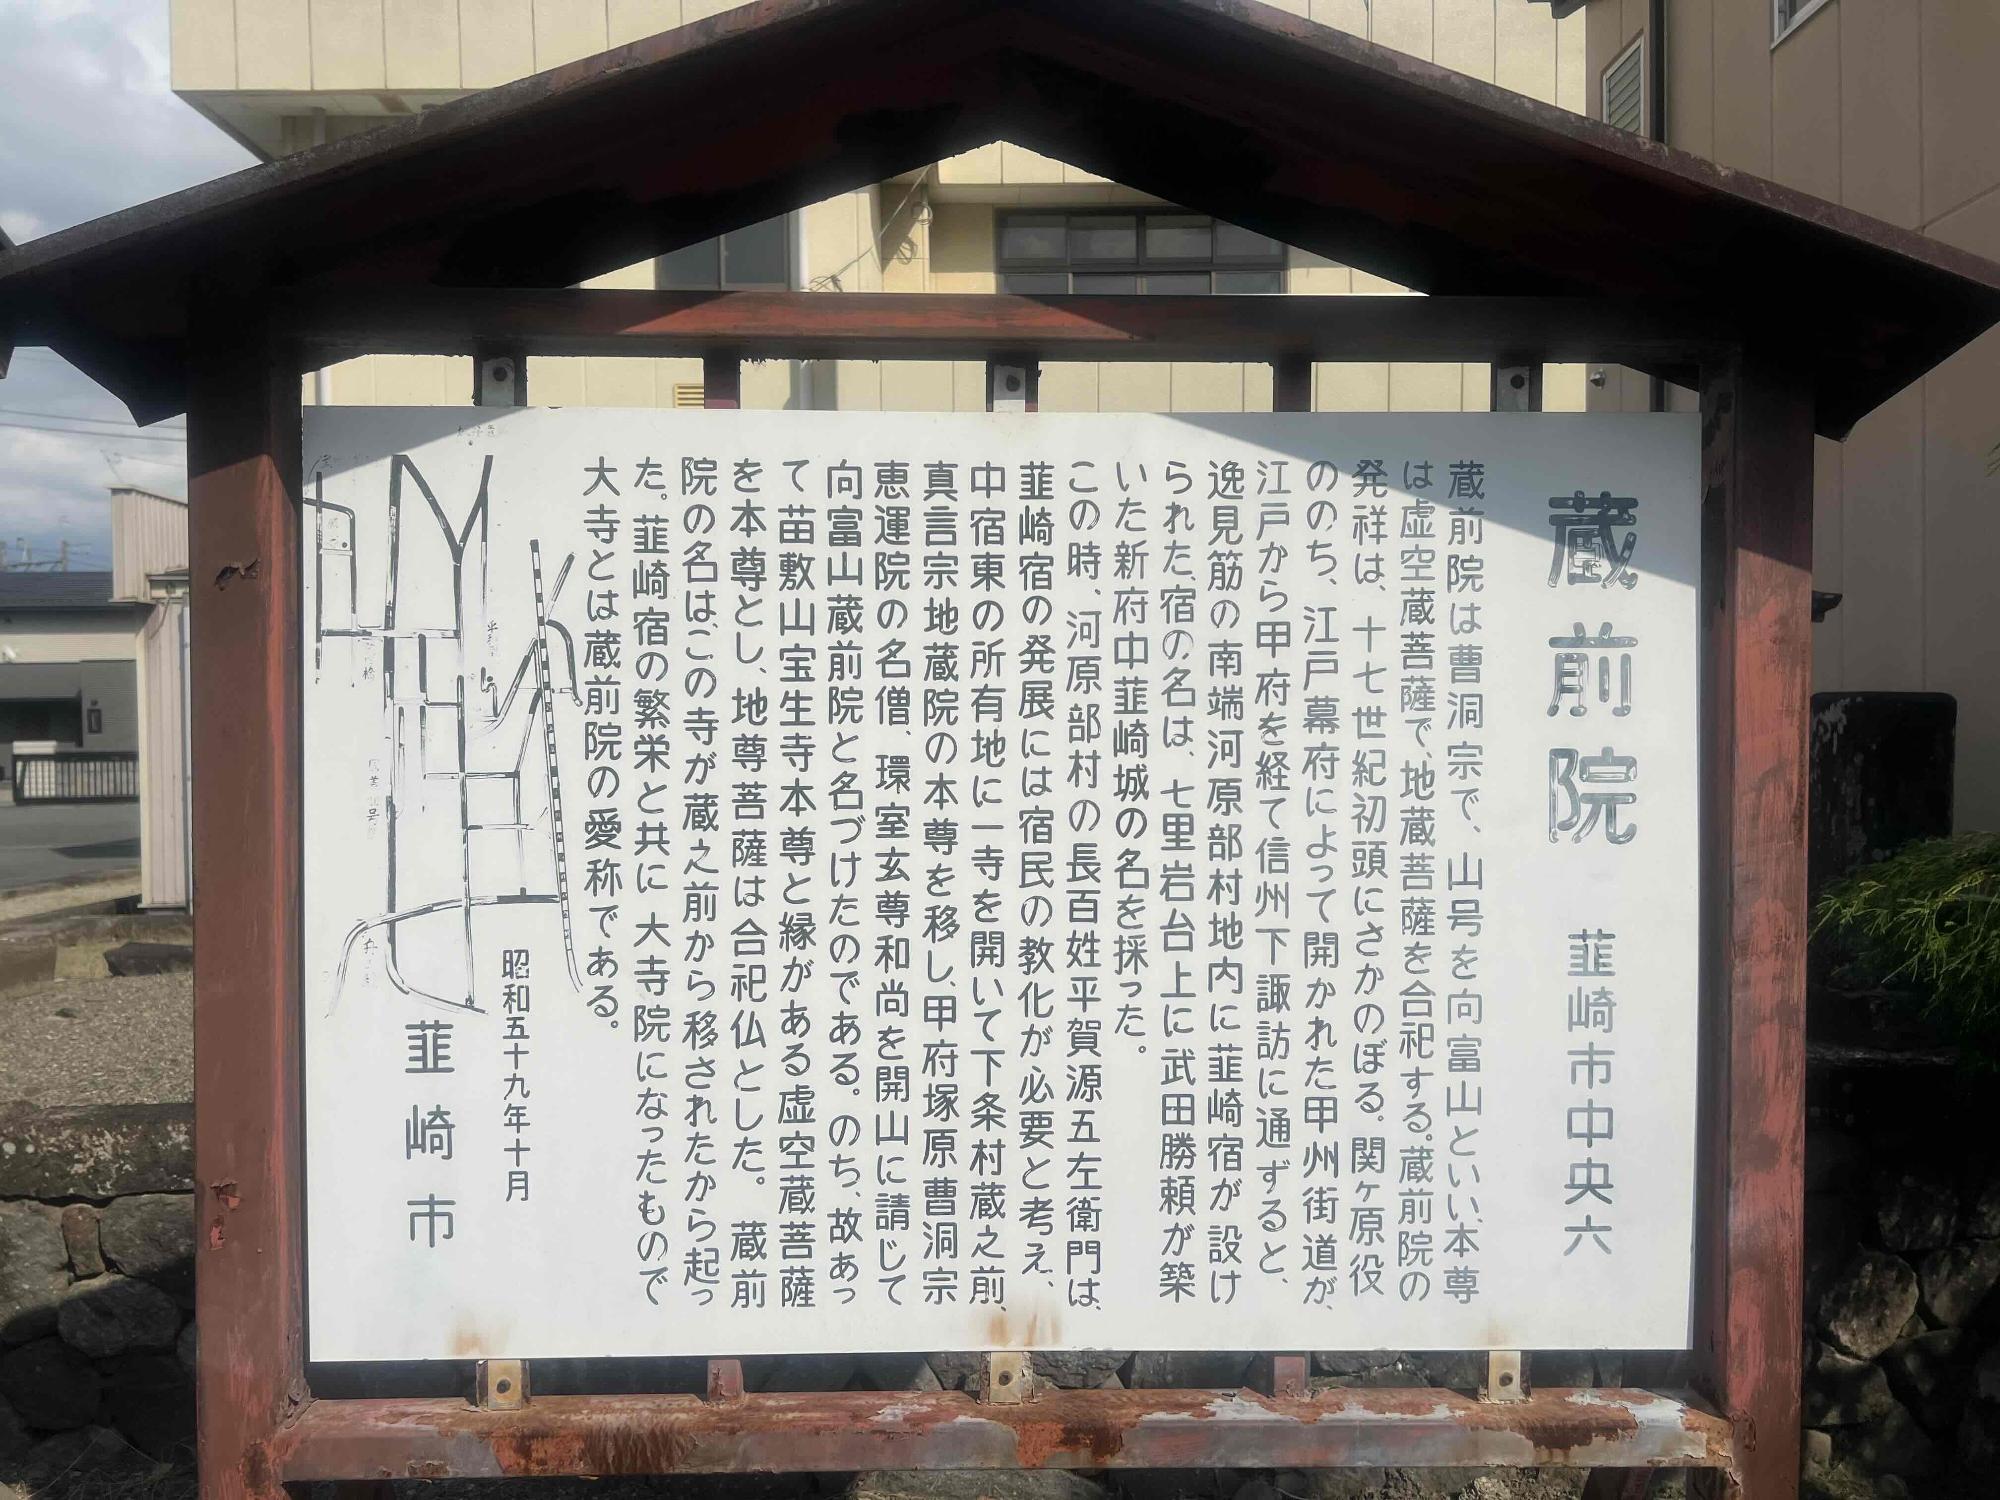 蔵前院 韮崎市中央六
蔵前院は曹洞宗で、山号を向富山といい、本尊
は虚空蔵菩薩で、地蔵菩薩を合祀する。蔵前院の
発祥は、十七世紀初頭にさかのぼる。関ヶ原役
ののち、江戸幕府によって開かれた甲州街道が、
江戸から甲府を経て信州下諏訪に通ずると、
逸見筋の南端河原部村地内に韮崎宿が設け
られた、宿の名は、七里岩台上に武田勝頼が築
いた新府中韮崎城の名を採った。
この時、河原部村の長百姓平賀源五左衛門は、
韮崎宿の発展には宿民の教化が必要と考え、
中宿東の所有地に一寺を開いて下条村蔵之前、
真言宗地蔵院の本尊を移し、甲府塚原曹洞宗
恵運院の名僧、環室玄尊和尚を開山に請じて
向富山蔵前院と名づけたのである。のち、故あっ
て苗敷山宝生寺本尊と縁がある虚空蔵菩薩
を本尊とし、地尊菩薩は合祀仏とした。蔵前
院の名は、この寺が蔵之前から移されたから起っ
た。韮崎宿の繁栄と共に大寺院になったもので
大寺とは蔵前院の愛称である。
昭和五十九年十月
韮崎市